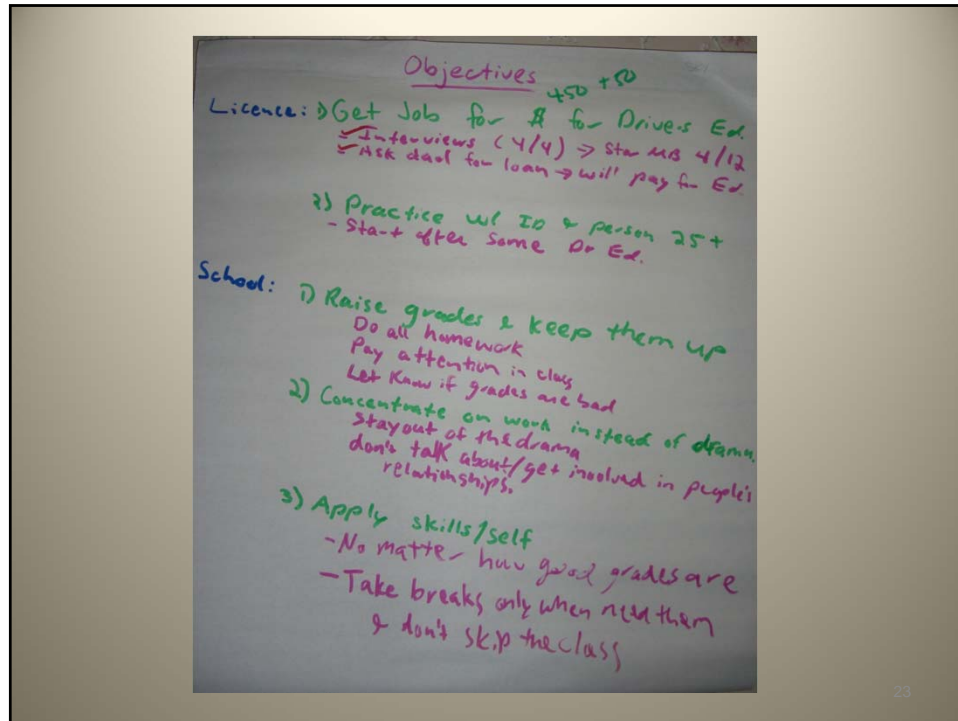 Objectives
+50 +50
Licence: 1) Get Job for $ for Drivers Ed.
- Interviews (4/4) → Star MB 4/12
- Ask dad for loan → will pay for Ed.
2) Practice w/ ID & person 25+
- Start after some Dr Ed.
School: 1) Raise grades & keep them up
Do all homework
Pay attention in class
Let Know if grades are bad
2) Concentrate on work instead of drama.
Stay out of the drama
don't talk about/get involved in people's
relationships.
3) Apply skills/self
- No matter how good grades are
- Take breaks only when need them
& don't skip the class
23